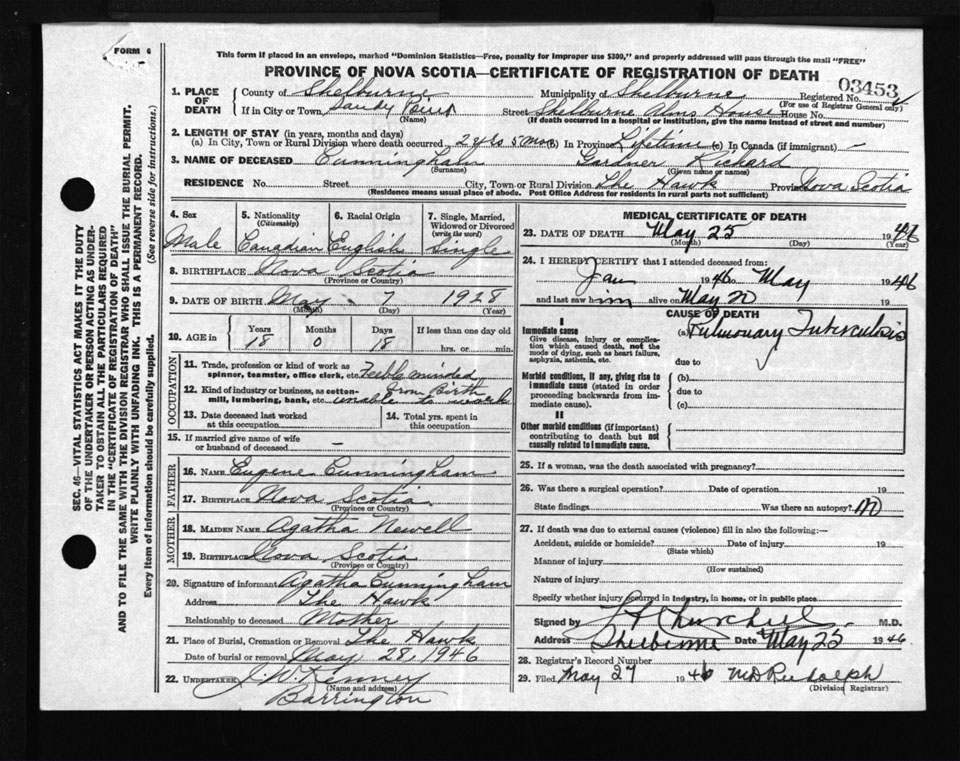 FORM 6
This form if placed in an envelope, marked "Dominion Statistics—Free, penalty for improper use $300," and properly addressed will pass through the mail "FREE"
PROVINCE OF NOVA SCOTIA—CERTIFICATE OF REGISTRATION OF DEATH
03453
1. PLACE OF DEATH
County of Shelburne Municipality of Shelburne Registered No.
(For use of Registrar General only)
If in City or Town Sandy Point Street Shelburne Alms House House No.
(Name) (If death occurred in a hospital or institution, give the name instead of street and number)
2. LENGTH OF STAY (in years, months and days)
(a) In City, Town or Rural Division where death occurred, 2 yrs 5 mos (b) In Province Lifetime (c) In Canada (if immigrant) —
3. NAME OF DECEASED Cunningham Gardner Richard
(Surname) (Given name or names)
RESIDENCE No. Street City, Town or Rural Division The Hawk Province Nova Scotia
(Residence means usual place of abode. Post Office Address for residents in rural parts not sufficient)
4. Sex 5. Nationality (Citizenship) 6. Racial Origin 7. Single, Married, Widowed or Divorced (write the word)
Male Canadian English Single
8. BIRTHPLACE Nova Scotia
(Province or Country)
9. DATE OF BIRTH May 7 1928
(Month) (Day) (Year)
10. AGE if Years Months Days If less than one day old
18 0 18 hrs. or min.
OCCUPATION
11. Trade, profession or kind of work as spinner, teamster, office clerk, etc. Feeble minded
12. Kind of industry or business, as cotton-mill, lumbering, bank, etc. from Birth unable to work
13. Date deceased last worked at this occupation
14. Total yrs. spent in this occupation
15. If married give name of wife or husband of deceased —
FATHER
16. NAME Eugene Cunningham
17. BIRTHPLACE Nova Scotia
(Province or Country)
MOTHER
18. MAIDEN NAME Agatha Newell
19. BIRTHPLACE Nova Scotia
(Province or Country)
20. Signature of informant Agatha Cunningham
Address The Hawk
Relationship to deceased Mother
21. Place of Burial, Cremation or Removal The Hawk
Date of burial or removal May 28, 1946
22. UNDERTAKER J. W. Kenney
(Name and address)
Barrington
MEDICAL CERTIFICATE OF DEATH
23. DATE OF DEATH May 25 1946
(Month) (Day) (Year)
24. I HEREBY CERTIFY that I attended deceased from:
Jan 1946 to May 1946
and last saw him alive on May 20 19
CAUSE OF DEATH
I
Immediate cause (a) Pulmonary Tuberculosis
Give disease, injury or complication which caused death, not the mode of dying, such as heart failure, asphyxia, asthenia, etc.
due to
Morbid conditions, if any, giving rise to immediate cause (stated in order proceeding backwards from immediate cause).
(b)
due to
(c)
II
Other morbid conditions (if important) contributing to death but not causally related to immediate cause.
25. If a woman, was the death associated with pregnancy?
26. Was there a surgical operation? Date of operation 19
State findings Was there an autopsy?
27. If death was due to external causes (violence) fill in also the following:—
Accident, suicide or homicide? Date of injury 19
(State which)
Manner of injury
(How sustained)
Nature of injury
Specify whether injury occurred in industry, in home, or in public place
Signed by Churchill M.D.
Address Shelburne Date May 25 1946
28. Registrar's Record Number
29. Filed May 27 1946 M D Rudolph
(Division Registrar)
SEC. 46—VITAL STATISTICS ACT MAKES IT THE DUTY
OF THE UNDERTAKER OR PERSON ACTING AS UNDER-
TAKER TO OBTAIN ALL THE PARTICULARS REQUIRED
IN THE "CERTIFICATE OF REGISTRATION OF DEATH"
AND TO FILE THE SAME WITH THE DIVISION REGISTRAR WHO SHALL ISSUE THE BURIAL PERMIT.
WRITE PLAINLY WITH UNFADING INK. THIS IS A PERMANENT RECORD.
Every item of information should be carefully supplied. (See reverse side for instructions.)